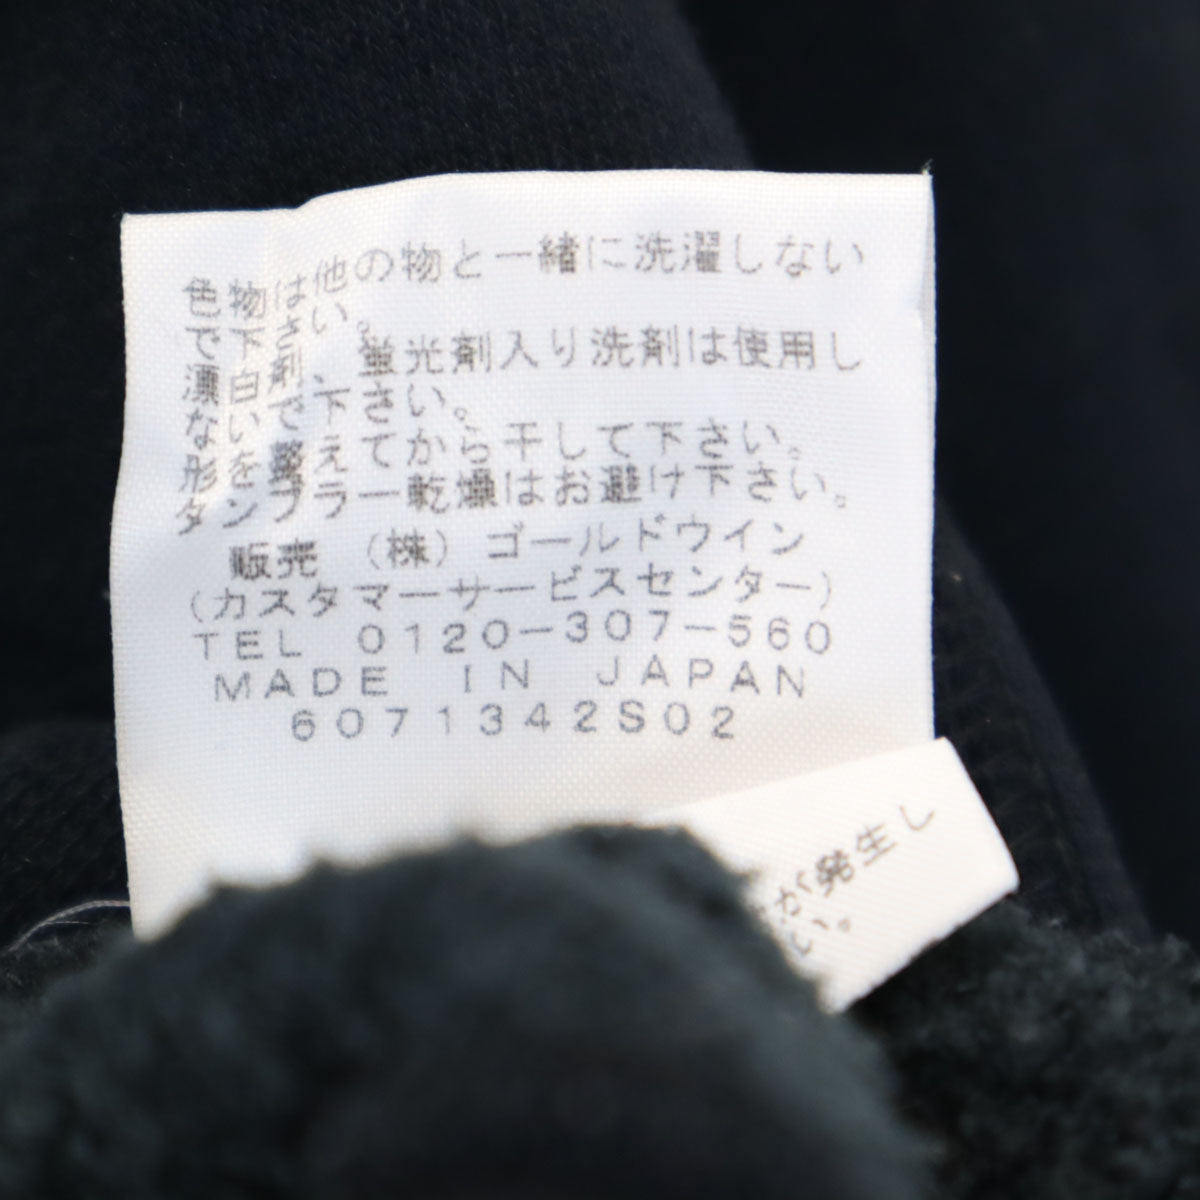 色物は他の物と一緒に洗濯しない
で下さい。
漂白剤、蛍光剤入り洗剤は使用し
ないで下さい。
形を整えてから干して下さい。
タンブラー乾燥はお避け下さい。
販売 (株) ゴールドウイン
(カスタマーサービスセンター)
TEL 0120-307-560
MADE IN JAPAN
6071342S02
が発生し
い。